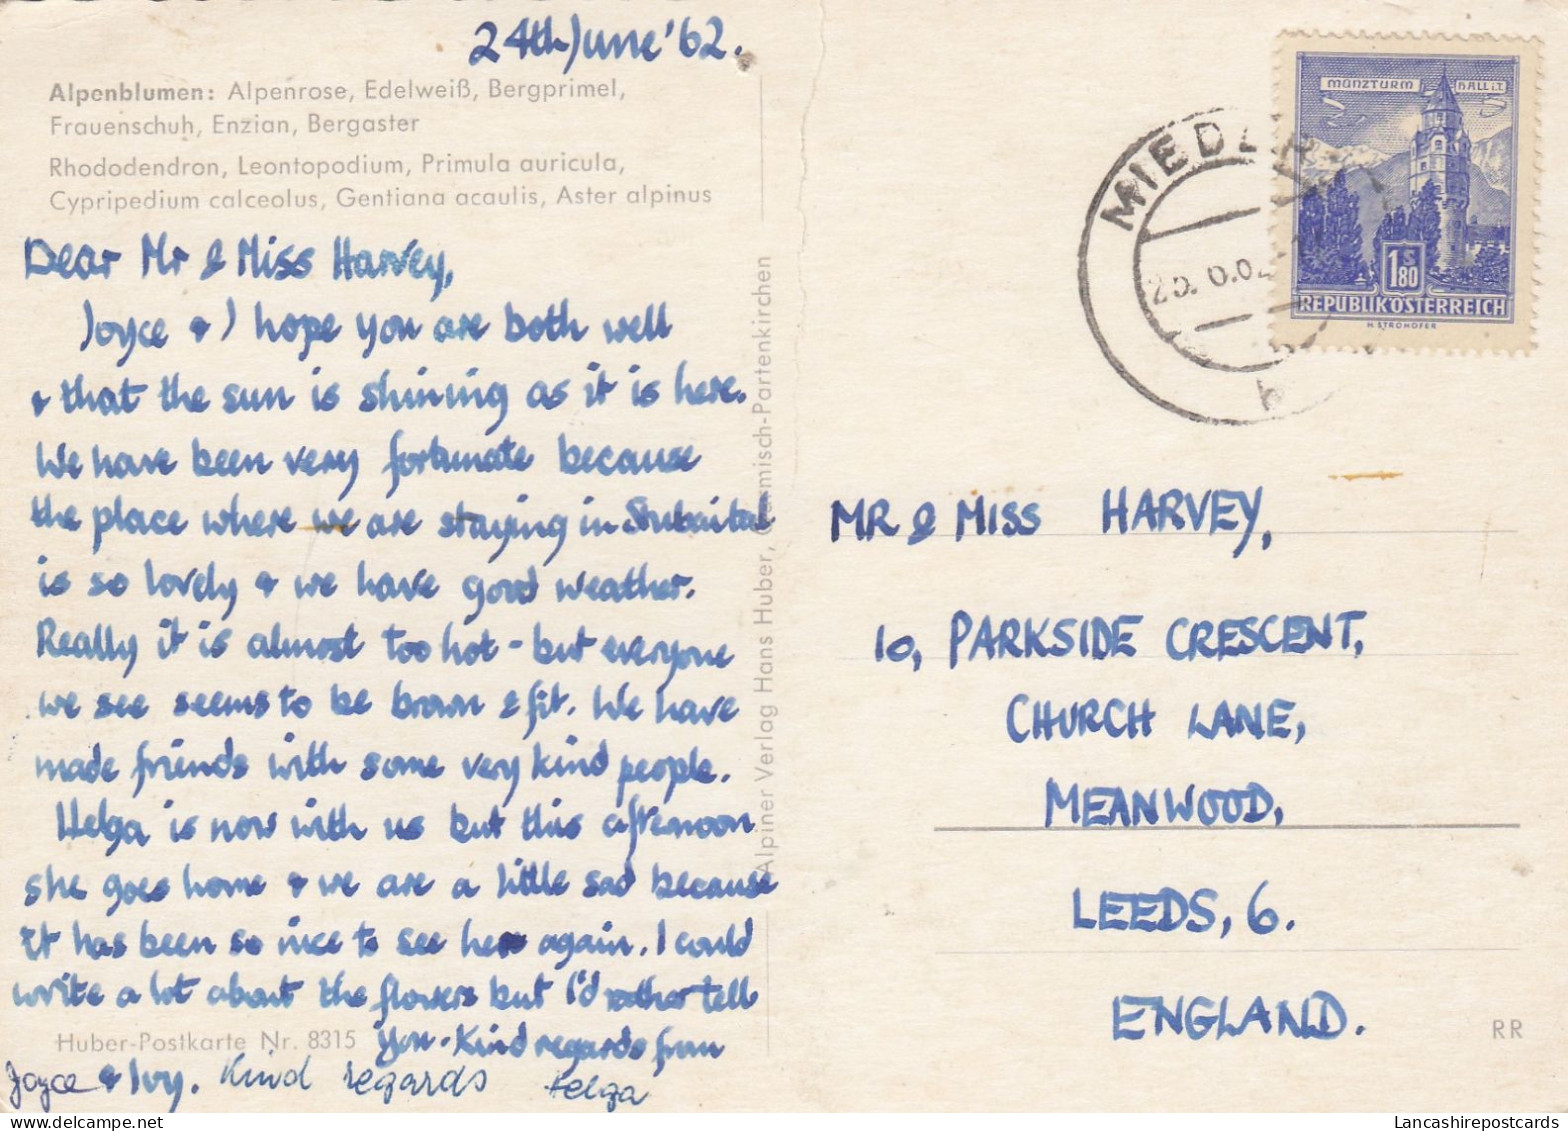 24th June '62.
Alpenblumen: Alpenrose, Edelweiß, Bergprimel,
Frauenschuh, Enzian, Bergaster
Rhododendron, Leontopodium, Primula auricula,
Cypripedium calceolus, Gentiana acaulis, Aster alpinus
Dear Mr & Miss Harvey,
Joyce & I hope you are both well
& that the sun is shining as it is here.
We have been very fortunate because
the place where we are staying in Stubaital
is so lovely & we have good weather.
Really it is almost too hot - but everyone
we see seems to be brown & fit. We have
made friends with some very kind people.
Helga is now with us but this afternoon
she goes home & we are a little sad because
it has been so nice to see her again. I could
write a lot about the flowers but I'd rather tell
you. Kind regards from
Joyce & Ivy. Kind regards Helga
Huber-Postkarte Nr. 8315
Alpiner Verlag Hans Huber, Garmisch-Partenkirchen
MÜNZTURM HALL i.T.
1 S 80
REPUBLIK ÖSTERREICH
H. STROHOFER
MIEDER
MR & MISS HARVEY,
10, PARKSIDE CRESCENT,
CHURCH LANE,
MEANWOOD,
LEEDS, 6.
ENGLAND.
RR
Lancashirepostcards